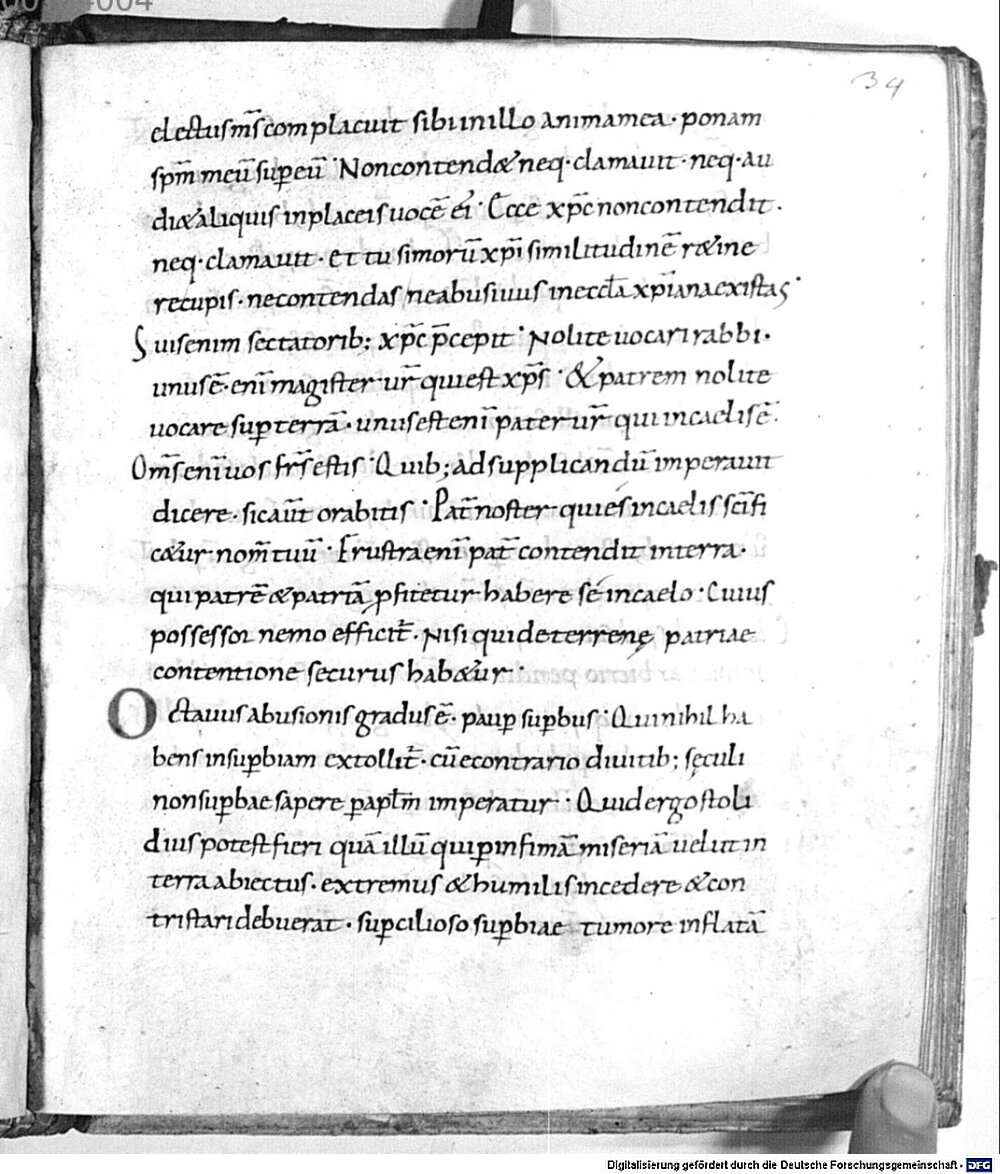 34
electus m̅s complacuit sibi in illo anima mea· ponam
sp̅m meu̅ sup̲ eu̅· Non contend& neq· clamauit· neq· au
di& aliquis in plateis uoce̅ ei̅· Ecce xp̅c non contendit·
neq· clamauit· Et tu si moru̅ xp̅i similitudine̅ r&ine
re cupis· ne contendas ne abusiuus in eccl̅a xp̅iana existas·
Suis enim sectatorib; xp̅c p̅cepit· Nolite uocari rabbi·
unus e̅· eni̅ magister ur̅ qui est xp̅s· & patrem nolite
uocare sup̲ terra̅· unus est eni̅ pater ur̅ qui in caelis e̅·
Om̅s eni̅ uos fr̅s estis· Quib; ad supplicandu̅ imperauit
dicere· sic aut̅ orabitis· Pat̅ noster qui es in caelis sc̅ifi
c&ur nom̅ tuu̅· Frustra eni̅ pat̅ contendit in terra·
qui patre̅ & patria̅ ꝓfitetur habere se in caelo· Cuius
possessor nemo efficit̅· Nisi qui de terrenę patriae
contentione securus hab&ur·
Octauus abusionis gradus e̅· paup̲ sup̲bus· Qui nihil ha
bens in sup̲biam extollit̅· cu̅ econtrario diuitib; sęculi
non sup̲bae sapere p̲ apl̅m imperatur· Quid ergo stoli
dius potest fieri qua̅ illu̅ qui p̲ infima̅ miseria̅ uelut in
terra abiectus· extremus & humilis incedere & con
tristari debuerat· sup̲cilioso sup̲biae tumore inflata̅
Digitalisierung gefördert durch die Deutsche Forschungsgemeinschaft - DFG